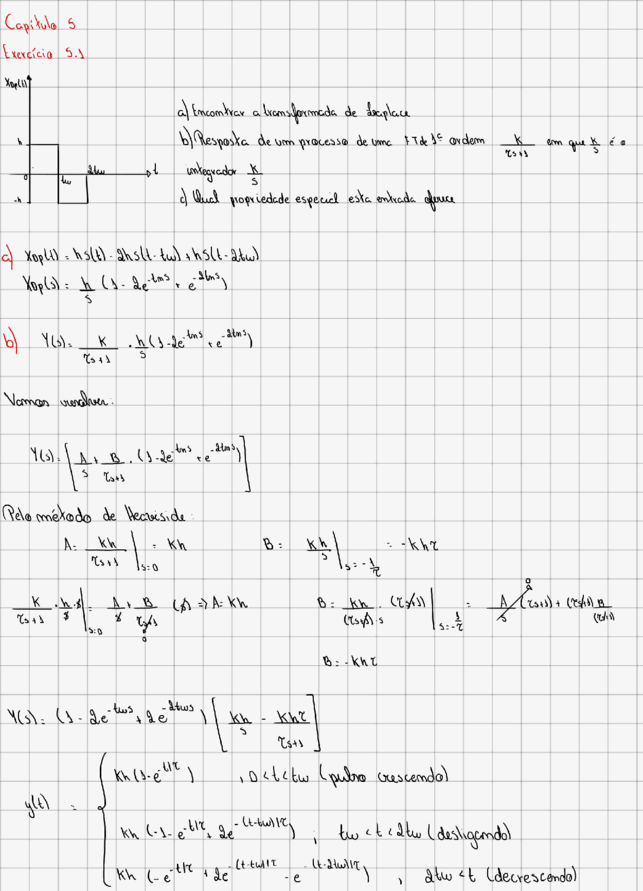 Capítulo 5
Exercício 5.1
Xop(t)
h
0
tw
2tw
t
-h
a) Encontrar a transformada de Laplace
b) Resposta de um processo de uma FT de 1º ordem K/(τs+1) em que K/s é o
integrador K/s
c) Qual propriedade especial esta entrada oferece
a) Xop(t) = hS(t) - 2hS(t-tw) + hS(t-2tw)
Xop(s) = h/s (1 - 2e^{-tws} + e^{-2tws})
b) Y(s) = K/(τs+1) · h/s (1 - 2e^{-tws} + e^{-2tws})
Vamos resolver:
Y(s) = [A/s + B/(τs+1) · (1 - 2e^{-tws} + e^{-2tws})]
Pelo método de Heaviside:
A = Kh/(τs+1) |s=0 = Kh B = Kh/s |s=-1/τ = -Khτ
K/(τs+1) · h/s · s |s=0 = A/s + B/(τs+1) (s) => A = Kh B = Kh/((τs+1)·s) · (τs+1) |s=-1/τ = A/s (τs+1) + (τs+1) B/(τs+1)
0 0
B = -Khτ
Y(s) = (1 - 2e^{-tws} + 2e^{-2tws}) [Kh/s - Khτ/(τs+1)]
y(t) = { Kh (1 - e^{-t/τ}) , 0 < t < tw (pulso crescendo)
Kh (-1 - e^{-t/τ} + 2e^{-(t-tw)/τ}) ; tw < t < 2tw (desligando)
Kh (-e^{-t/τ} + 2e^{-(t-tw)/τ} - e^{-(t-2tw)/τ}) , 2tw < t (decrescendo)